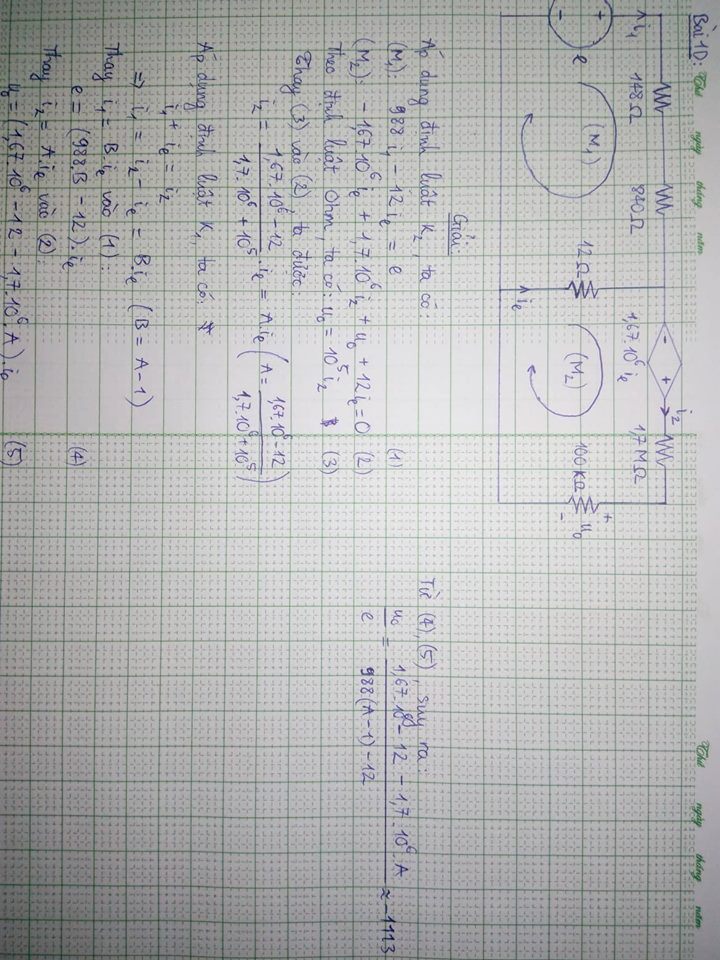 Bài 1D: Thứ ngày tháng năm
Thứ ngày tháng năm
i₂
- +
i₁
148Ω 840Ω 1,67.10⁶ iₑ 1,7 MΩ
+
-
e
(M₁)
12Ω
(M₂)
100 KΩ
+
u₀
-
iₑ
Giải:
Áp dụng định luật K₂, ta có:
(M₁): 988 i₁ - 12 iₑ = e (1)
(M₂): - 1,67.10⁶ iₑ + 1,7.10⁶ i₂ + u₀ + 12 iₑ = 0 (2)
Theo định luật Ohm, ta có: u₀ = 10⁵ i₂ (3)
Thay (3) vào (2), ta được:
i₂ = (1,67.10⁶ - 12)/(1,7.10⁶ + 10⁵) . iₑ = A.iₑ (A = (1,67.10⁶ - 12)/(1,7.10⁶ + 10⁵))
Áp dụng định luật K₁, ta có:
i₁ + iₑ = i₂
⇒ i₁ = i₂ - iₑ = B.iₑ (B = A - 1)
Thay i₁ = B.iₑ vào (1):
e = (988.B - 12).iₑ (4)
Thay i₂ = A.iₑ vào (2):
u₀ = (1,67.10⁶ - 12 - 1,7.10⁶.A).iₑ (5)
Từ (4), (5), suy ra:
u₀/e = (1,67.10⁶ - 12 - 1,7.10⁶.A)/(988(A-1) - 12) ≈ -1113